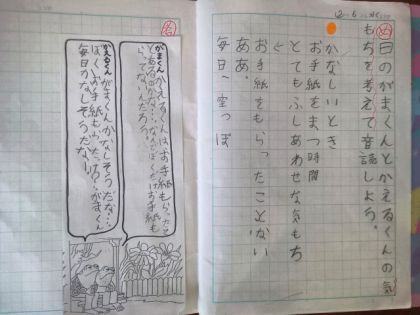 12-6
め
一日のがまくんとかえるくんの気
もちを考えて音読しよう。
かなしいとき
お手紙をまつ時間
とてもふしあわせな気もち
お手紙をもらったことない
ああ。
毎日、空っぽ
がまくん
かえるくんはお手紙もらったこ
とあるのかな
ぼくだけお手紙も
らってないんだろう。
かえるくん
がまくんかなしそうだな…。
ぼくもお手紙もらった
がまくん
毎日かなしそうだな…。